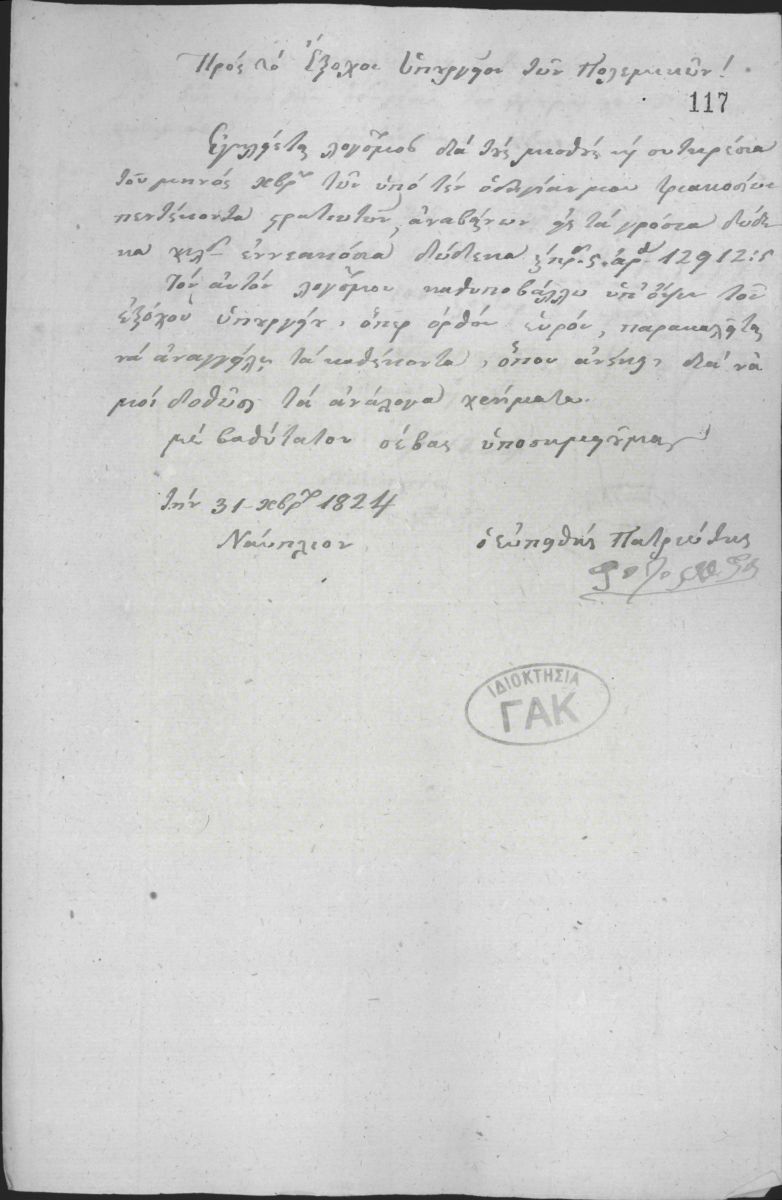 Πρός τό Ἔξοχον Ὑπουργεῖον τῶν Πολεμικῶν!
117
λογ/σμός διά τούς μισθούς καί σιτηρέσια
τοῦ μηνός χβρίου τῶν ὑπό τήν ὁδηγίαν μου τριακοσίων
πεντήκοντα στρατιωτῶν, ἀναβαίνων εἰς τά γρόσια δώδε
κα χιλ. ἐννεακόσια δώδεκα ἀρ. 12912:
Τόν αὐτόν λογ/σμόν καθυποβάλλω ὑπ' ὄψιν τοῦ
ἐξόχου Ὑπουργείου, ὅπερ ὀρθόν εὑρόν, παρακαλεῖται
νά ἀναγγείλῃ τά καθέκαστα, ὅπου ἀνήκει, διά νά
μοί δοθῶσι τά ἀνάλογα χρήματα.
μέ βαθύτατον σέβας ὑποσημειοῦμαι
τήν 31 χβρίου 1824
Ναύπλιον
ὁ εὐπειθής Πατριώτης
ΙΔΙΟΚΤΗΣΙΑ
ΓΑΚ